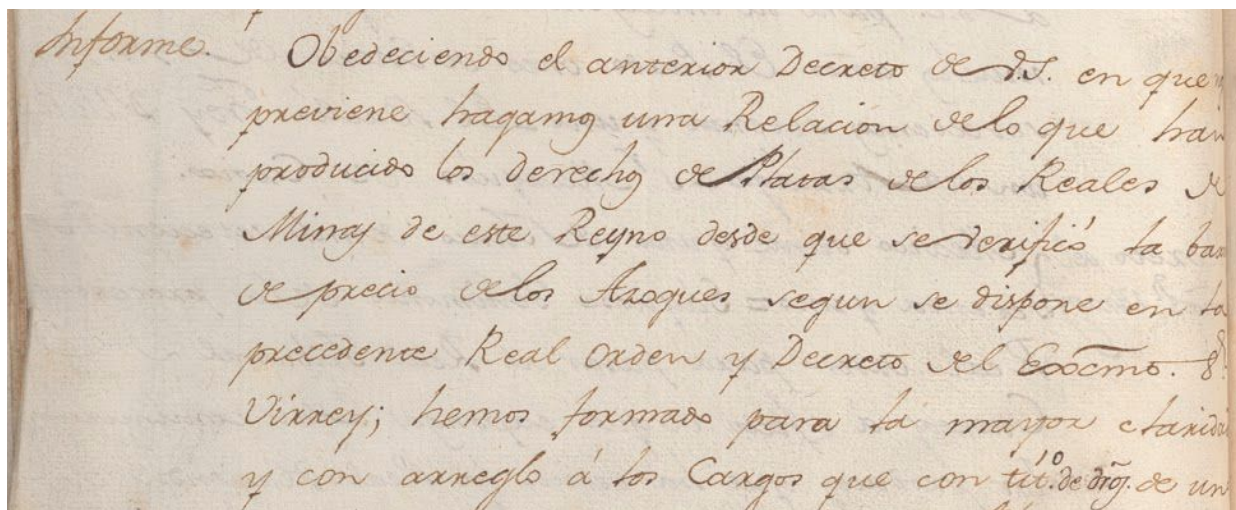 Informe. Obedeciendo el anterior Decreto de V.S. en que
previene hagamos una Relacion delo que han
producido los derechos de Platas de los Reales de
Minas de este Reyno desde que se verificó la baxa
de precio delos Azogues segun se dispone en la
precedente Real orden y Decreto del Excmo. Sr.
Virrey; hemos formado para la mayor claridad
y con arreglo á los Cargos que con titº. de dros. de un